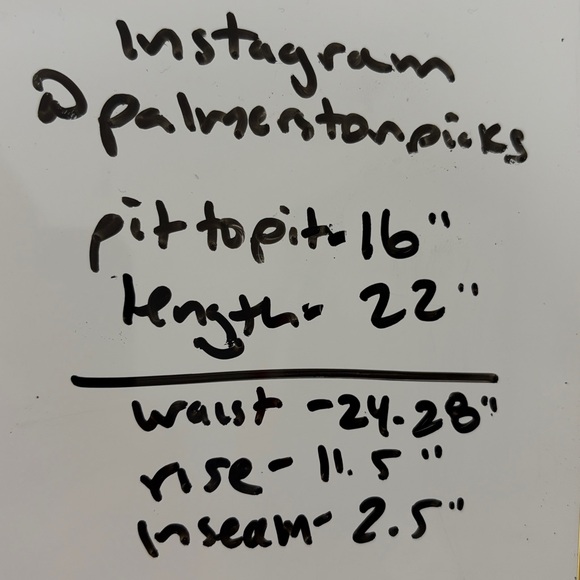 Instagram
@palmerstonpicks
pit to pit-16"
length- 22"
waist -24-28"
rise- 11.5"
inseam- 2.5"